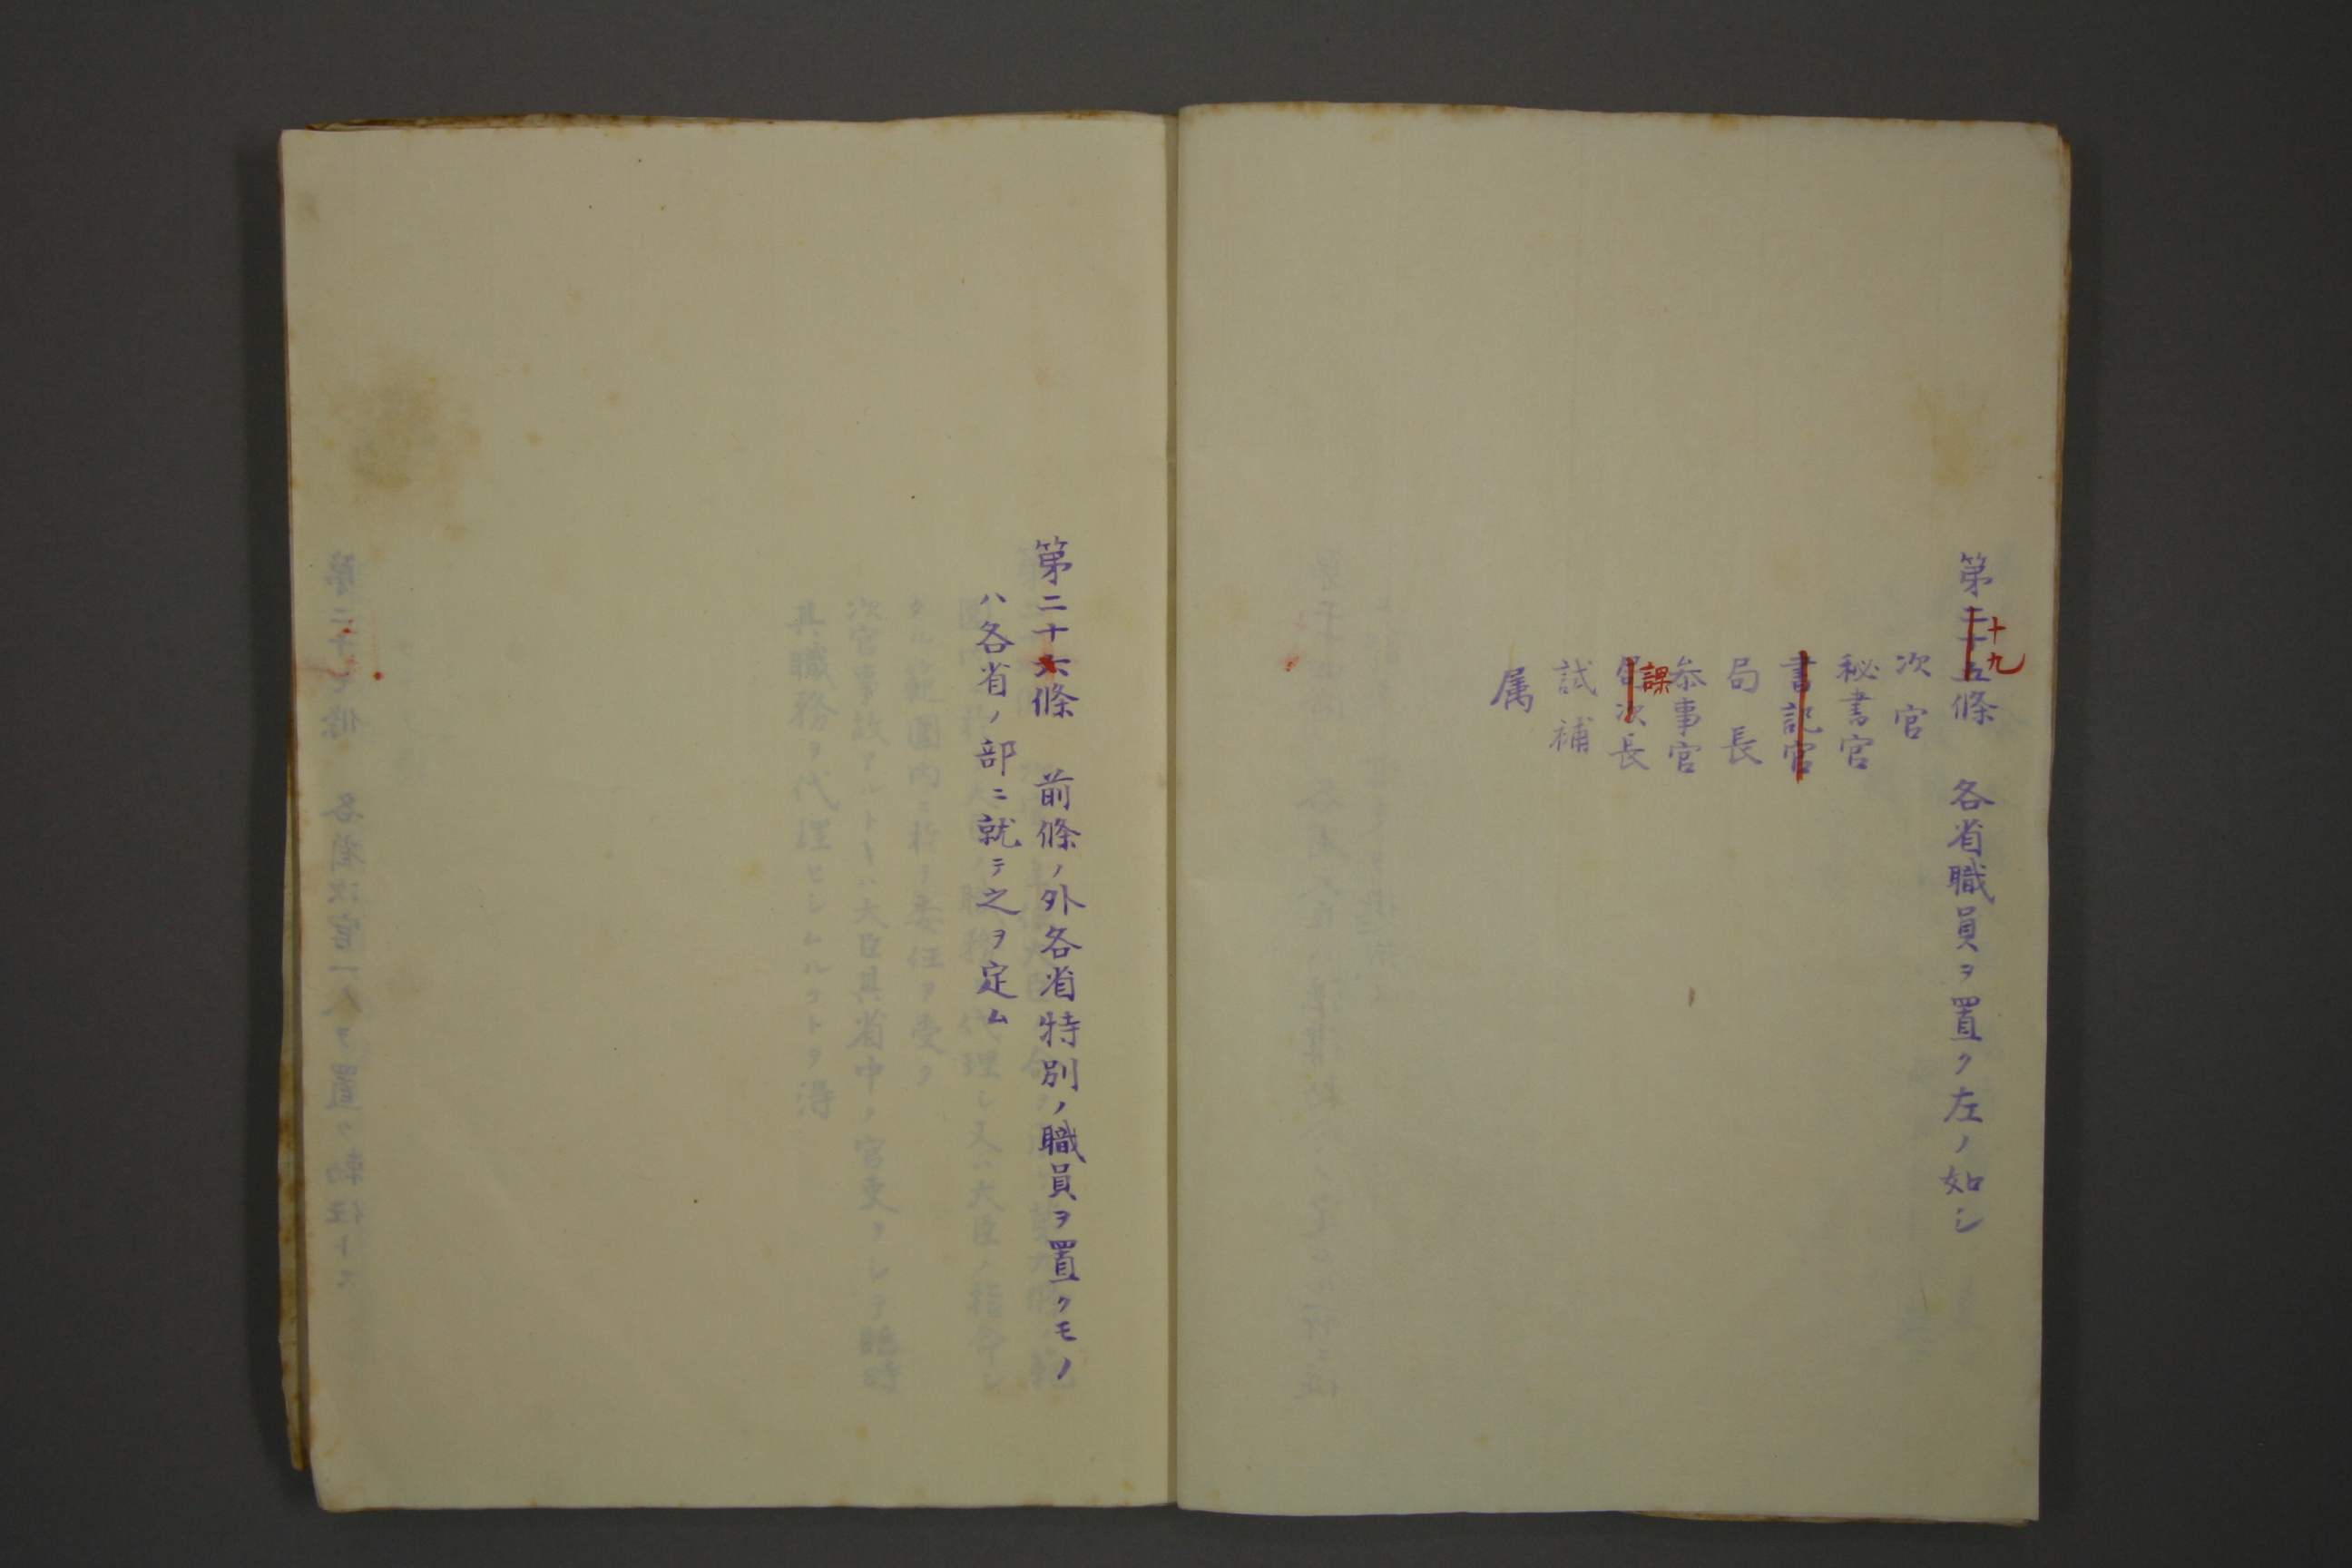 第二十五條　各省職員ヲ置ク左ノ如シ
十九
次官
秘書官
書記官
局長
参事官
課
局次長
試補
属
第二十六條　前條ノ外各省特別ノ職員ヲ置クモノ
ハ各省ノ部ニ就テ之ヲ定ム